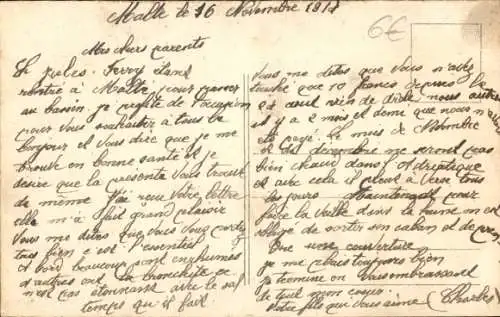 Malte le 16 Novembre 1917
6€
Mes chers parents
Le Jules-Ferry étant
rentré à Malte, pour passer
au bassin. je profite de l'occasion
pour vous souhaiter à tous le
bonjour et vous dire que je me
trouve en bonne santé et je
désire que la présente vous trouve
de même J'ai reçu votre lettre
elle m'a fait grand plaisir
Vous me dites que vous vous portez
très bien c'est l'essentiel
A bord beaucoup sont enrhumés
d'autres ont la bronchite ce
n'est pas étonnant avec le sal
temps qu'il fait
Vous me dites que vous n'avez
touché que 10 francs depuis le
rien de drôle nous autre
il y a 2 mois et demi que nous
payé. Le mois de Novembre
et de décembre ne seront pas
bien chaud dans l'Adriatique
et avec cela il pleut à verse tous
les jours Maintenant pour
faire la veille dans la hune on est
obligé de sortir son caban et de
une couverture
je me plais toujours bien
je termine en vous embrassant
de tout mon coeur.
votre fils qui vous aime (Charles)